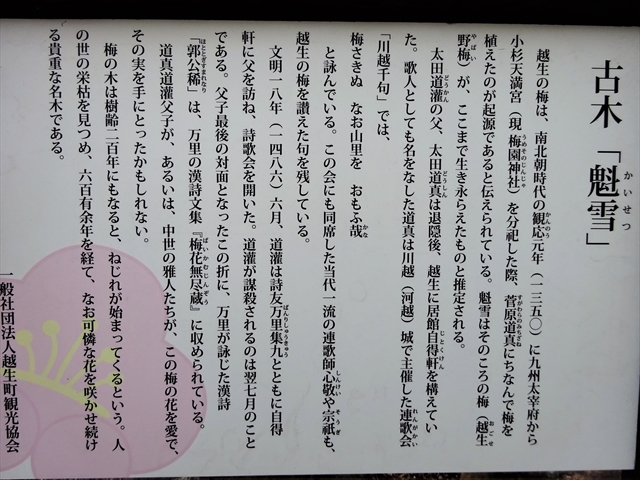 古木「魁雪」
かいせつ
越生の梅は、南北朝時代の観応元年（一三五〇）に九州太宰府から
かんのう
小杉天満宮（現 梅園神社）を分祀した際、菅原道真にちなんで梅を
うめそのじんじゃ
すがわらのみちざね
植えたのが起源であると伝えられている。魁雪はそのころの梅（越生
おごせ
野梅）が、ここまで生き永らえたものと推定される。
やばい
太田道灌の父、太田道真は退隠後、越生に居館自得軒を構えてい
どうかん
どうしん
じとくけん
た。歌人としても名をなした道真は川越（河越）城で主催した連歌会
れんががい
「川越千句」では、
梅さきぬ　なお山里を　おもふ哉
かな
と詠んでいる。この会にも同席した当代一流の連歌師心敬や宗祇も、
しんけい
そうぎ
越生の梅を讃えた句を残している。
文明一八年（一四八六）六月、道灌は詩友万里集九とともに自得
ばんりしゅうきゅう
軒に父を訪ね、詩歌会を開いた。道灌が謀殺されるのは翌七月のこと
である。父子最後の対面となったこの折に、万里が詠じた漢詩
「郭公稀」は、万里の漢詩文集『梅花無尽蔵』に収められている。
ほととぎすまれなり
ばいかむじんぞう
道真道灌父子が、あるいは、中世の雅人たちが、この梅の花を愛で、
その実を手にとったかもしれない。
梅の木は樹齢二百年にもなると、ねじれが始まってくるという。人
の世の栄枯を見つめ、六百有余年を経て、なお可憐な花を咲かせ続け
る貴重な名木である。
一般社団法人越生町観光協会